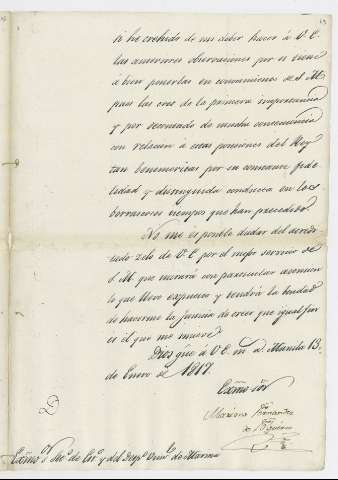 he crehido de mi deber hacer á V.E.
las anteriores observaciones por si tiene
á bien ponerlas en conocimiento de S.M.
pues las creo de la primera importancia
y por decontado de mucha consecuencia
con relacion á estas posesiones del Rey
tan benemeritas por su constante fide
lidad y distinguida conducta en los
borrascosos tiempos que han precedido.
No me es posible dudar del acredi
tado zelo de V.E. por el mejor servicio de
S.M. que mirará con particular atencion
lo que llevo expuesto y tendrá la bondad
de hacerme la justicia de creer que igual fin
es el que me mueve.
Dios gue á V.E. m. a. Manila 13.
de Enero de 1817.
Exmo Sor
Mariano Fernandez
de Folgueras
D
Exmo Sr Srio de Esto y del Despo Univl de Marina